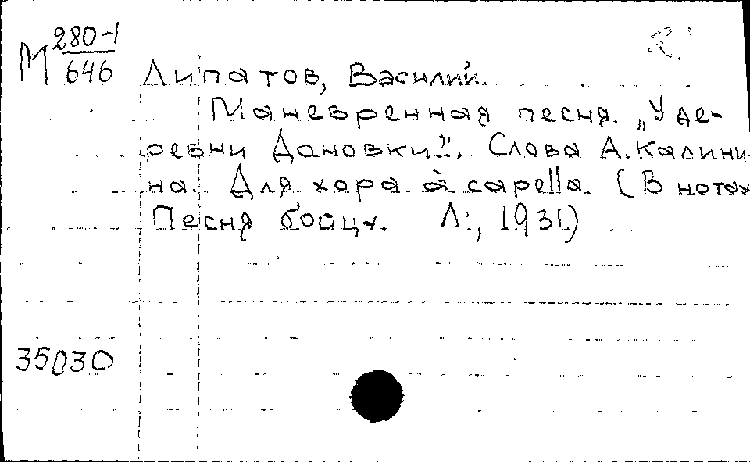 М 280-1/646 Липатов, Василий.
Маневренная песня. „У де-
ревни Дановки...". Слова А. Калини-
на. Для хора à capella. (В нотах
Песня бойцу. Л., 1931)
35030